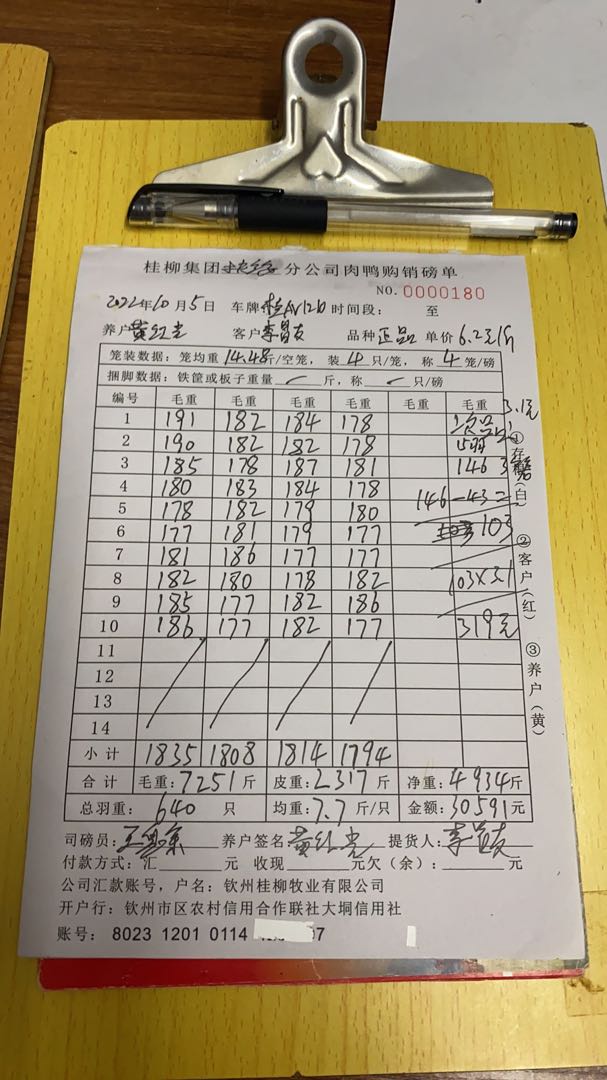 桂柳集团 分公司肉鸭购销磅单
NO. 0000180
2022年10月5日 车牌 时间段: 至
养户黄红光 客户李昌友 品种正品 单价6.2元/斤
笼装数据: 笼均重14.48斤/空笼, 装4只/笼, 称4笼/磅
捆脚数据: 铁筐或板子重量 斤, 称 只/磅
编号 毛重 毛重 毛重 毛重 毛重 毛重 3.1元
1 191 182 184 178 次品
2 190 182 182 178
3 185 178 187 181 146
4 180 183 184 178 146-43=
5 178 182 179 180 103
6 177 181 179 177
7 181 186 177 177
8 182 180 178 182 103×3.1
9 185 177 182 186
10 186 177 182 177 319元
11
12
13
14
小计 1835 1808 1814 1794
合计 毛重:7251斤 皮重:2317斤 净重:4934斤
总羽重: 640 只 均重:7.7斤/只 金额:30591元
司磅员: 养户签名 黄红光 提货人: 李昌友
付款方式: 汇 元 收现 元欠(余): 元
公司汇款账号, 户名: 钦州桂柳牧业有限公司
开户行: 钦州市区农村信用合作联社大垌信用社
账号: 8023 1201 0114 7
①存根(白)
②客户(红)
③养户(黄)